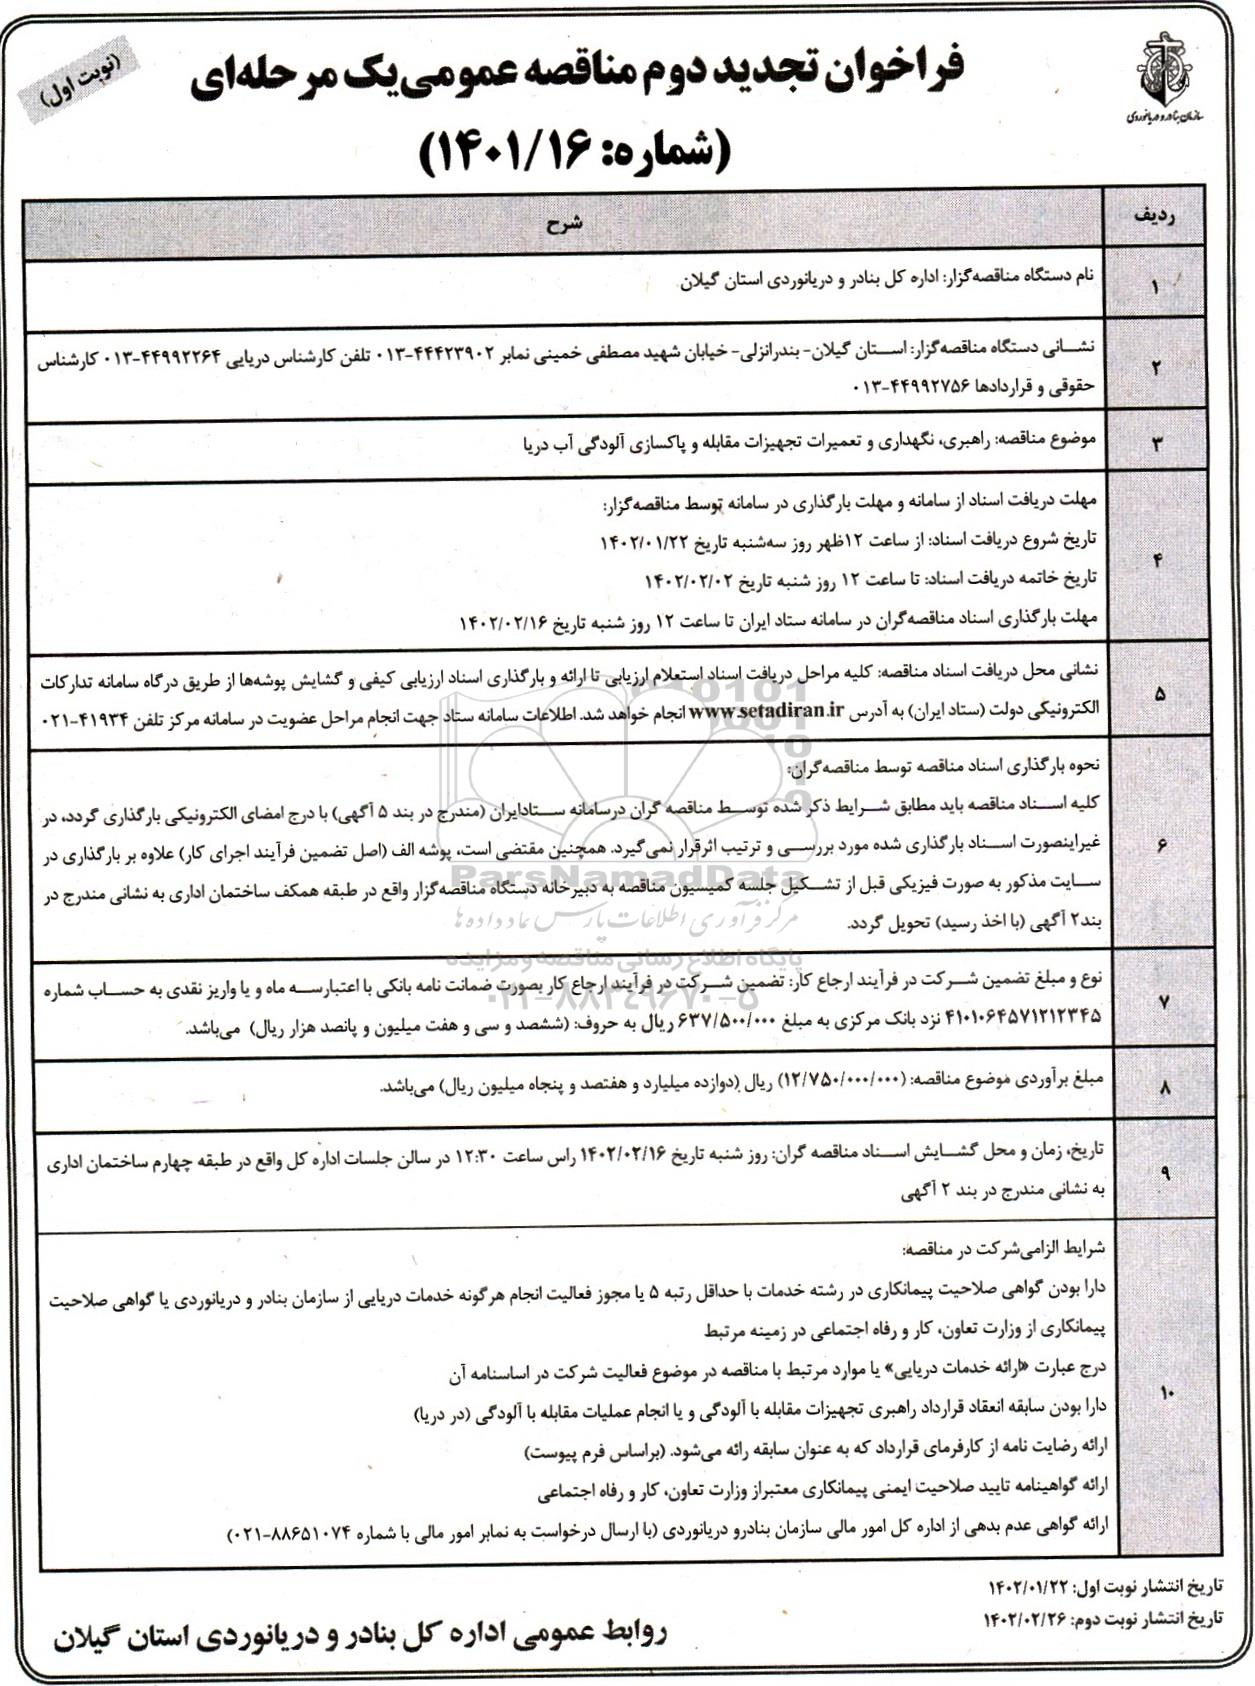 سازمان بنادر و دریانوردی
(نوبت اول)
فراخوان تجدید دوم مناقصه عمومی یک مرحله‌ای
(شماره: ۱۴۰۱/۱۶)
ردیف شرح
۱ نام دستگاه مناقصه‌گزار: اداره کل بنادر و دریانوردی استان گیلان
۲ نشانی دستگاه مناقصه‌گزار: استان گیلان- بندرانزلی- خیابان شهید مصطفی خمینی نمابر ۴۴۴۲۳۹۰۲-۰۱۳ تلفن کارشناس دریایی ۴۴۹۹۲۲۶۴-۰۱۳ کارشناس
حقوقی و قراردادها ۴۴۹۹۲۷۵۶-۰۱۳
۳ موضوع مناقصه: راهبری، نگهداری و تعمیرات تجهیزات مقابله و پاکسازی آلودگی آب دریا
۴ مهلت دریافت اسناد از سامانه و مهلت بارگذاری در سامانه توسط مناقصه‌گزار:
تاریخ شروع دریافت اسناد: از ساعت ۱۲ظهر روز سه‌شنبه تاریخ ۱۴۰۲/۰۱/۲۲
تاریخ خاتمه دریافت اسناد: تا ساعت ۱۲ روز شنبه تاریخ ۱۴۰۲/۰۲/۰۲
مهلت بارگذاری اسناد مناقصه‌گران در سامانه ستاد ایران تا ساعت ۱۲ روز شنبه تاریخ ۱۴۰۲/۰۲/۱۶
۵ نشانی محل دریافت اسناد مناقصه: کلیه مراحل دریافت اسناد استعلام ارزیابی تا ارائه و بارگذاری اسناد ارزیابی کیفی و گشایش پوشه‌ها از طریق درگاه سامانه تدارکات
الکترونیکی دولت (ستاد ایران) به آدرس www.setadiran.ir انجام خواهد شد. اطلاعات سامانه ستاد جهت انجام مراحل عضویت در سامانه مرکز تلفن ۴۱۹۳۴-۰۲۱
۶ نحوه بارگذاری اسناد مناقصه توسط مناقصه‌گران:
کلیه اسناد مناقصه باید مطابق شرایط ذکر شده توسط مناقصه گران درسامانه ستادایران (مندرج در بند ۵ آگهی) با درج امضای الکترونیکی بارگذاری گردد، در
غیراینصورت اسناد بارگذاری شده مورد بررسی و ترتیب اثرقرار نمی‌گیرد. همچنین مقتضی است، پوشه الف (اصل تضمین فرآیند اجرای کار) علاوه بر بارگذاری در
سایت مذکور به صورت فیزیکی قبل از تشکیل جلسه کمیسیون مناقصه به دبیرخانه دستگاه مناقصه‌گزار واقع در طبقه همکف ساختمان اداری به نشانی مندرج در
بند۲ آگهی (با اخذ رسید) تحویل گردد.
ParsNamadData
مرکز فرآوری اطلاعات پارس نماد داده ها
پایگاه اطلاع رسانی مناقصه و مزایده
۰۲۱-۸۸۳۴۹۶۷۰-۵
۷ نوع و مبلغ تضمین شرکت در فرآیند ارجاع کار: تضمین شرکت در فرآیند ارجاع کار بصورت ضمانت نامه بانکی با اعتبارسه ماه و یا واریز نقدی به حساب شماره
۴۱۰۱۰۶۴۵۷۱۲۱۲۳۴۵ نزد بانک مرکزی به مبلغ ۶۳۷/۵۰۰/۰۰۰ ریال به حروف: (ششصد و سی و هفت میلیون و پانصد هزار ریال) می‌باشد.
۸ مبلغ برآوردی موضوع مناقصه: (۱۲/۷۵۰/۰۰۰/۰۰۰) ریال (دوازده میلیارد و هفتصد و پنجاه میلیون ریال) می‌باشد.
۹ تاریخ، زمان و محل گشایش اسناد مناقصه گران: روز شنبه تاریخ ۱۴۰۲/۰۲/۱۶ راس ساعت ۱۲:۳۰ در سالن جلسات اداره کل واقع در طبقه چهارم ساختمان اداری
به نشانی مندرج در بند ۲ آگهی
۱۰ شرایط الزامی‌شرکت در مناقصه:
دارا بودن گواهی صلاحیت پیمانکاری در رشته خدمات با حداقل رتبه ۵ یا مجوز فعالیت انجام هرگونه خدمات دریایی از سازمان بنادر و دریانوردی یا گواهی صلاحیت
پیمانکاری از وزارت تعاون، کار و رفاه اجتماعی در زمینه مرتبط
درج عبارت «ارائه خدمات دریایی» یا موارد مرتبط با مناقصه در موضوع فعالیت شرکت در اساسنامه آن
دارا بودن سابقه انعقاد قرارداد راهبری تجهیزات مقابله با آلودگی و یا انجام عملیات مقابله با آلودگی (در دریا)
ارائه رضایت نامه از کارفرمای قرارداد که به عنوان سابقه رائه می‌شود. (براساس فرم پیوست)
ارائه گواهینامه تایید صلاحیت ایمنی پیمانکاری معتبراز وزارت تعاون، کار و رفاه اجتماعی
ارائه گواهی عدم بدهی از اداره کل امور مالی سازمان بنادرو دریانوردی (با ارسال درخواست به نمابر امور مالی با شماره ۸۸۶۵۱۰۷۴-۰۲۱)
تاریخ انتشار نوبت اول: ۱۴۰۲/۰۱/۲۲
تاریخ انتشار نوبت دوم: ۱۴۰۲/۰۲/۲۶
روابط عمومی اداره کل بنادر و دریانوردی استان گیلان